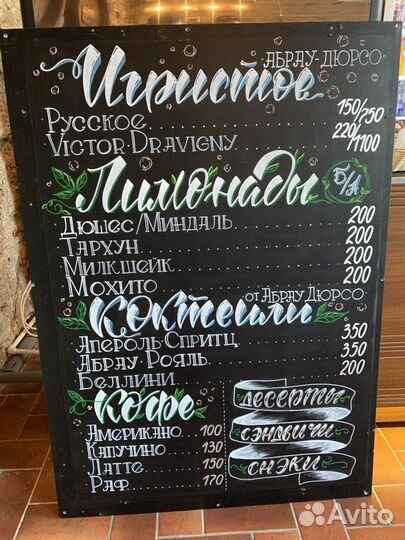 Игристое
АБРАУ-ДЮРСО
Русское 150/750
Victor Dravigny 220/1100
Лимонады Б/А
Дюшес/Миндаль 200
Тархун 200
Милкшейк 200
Мохито 200
Коктейли
от Абрау Дюрсо
Апероль Спритц 350
Абрау Рояль 350
Беллини 200
Кофе
Американо 100
Капучино 130
Латте 150
Раф 170
Десерты
Сэндвичи
Снэки
Avito